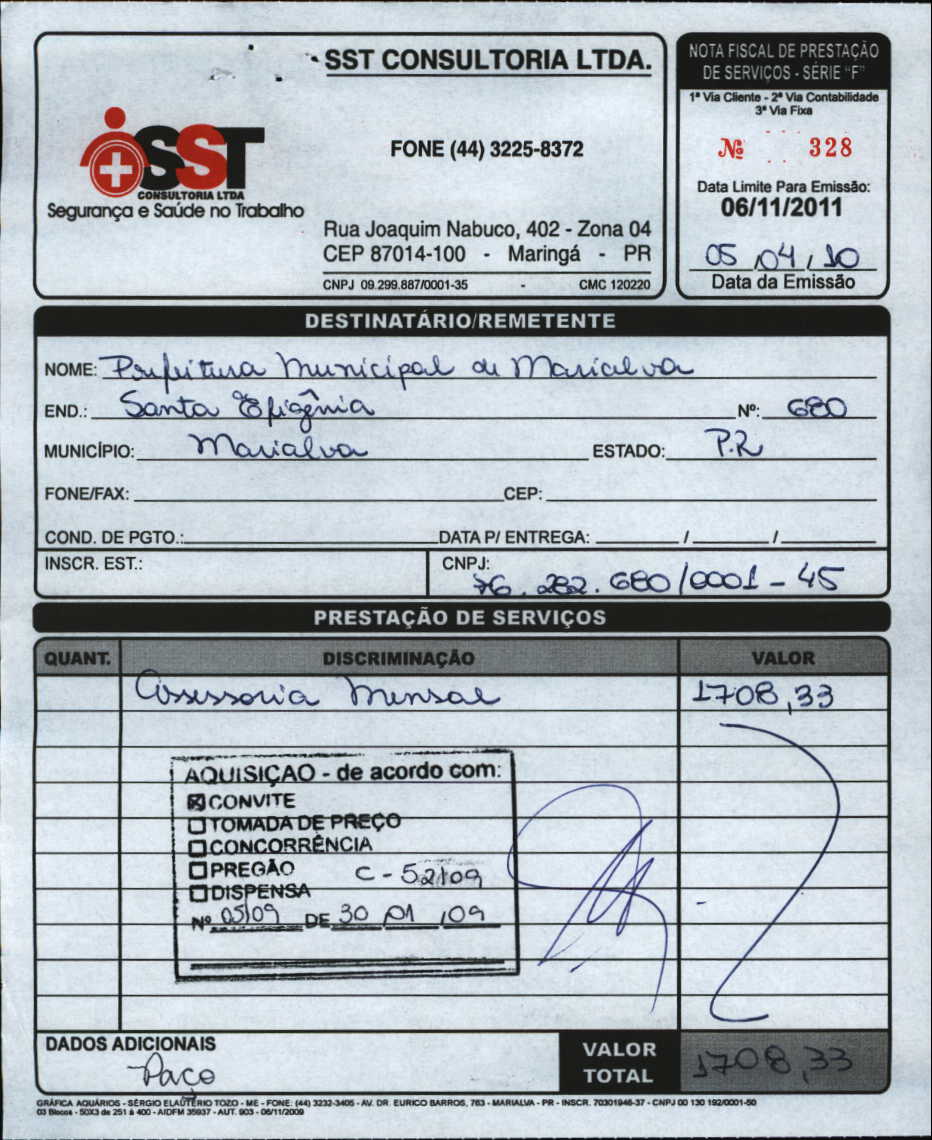 SST CONSULTORIA LTDA.
FONE (44) 3225-8372
SST
CONSULTORIA LTDA
Segurança e Saúde no Trabalho
Rua Joaquim Nabuco, 402 - Zona 04
CEP 87014-100 - Maringá - PR
CNPJ 09.299.887/0001-35 - CMC 120220
NOTA FISCAL DE PRESTAÇÃO
DE SERVIÇOS - SÉRIE "F"
1ª Via Cliente - 2ª Via Contabilidade
3ª Via Fixa
Nº 328
Data Limite Para Emissão:
06/11/2011
05/04/10
Data da Emissão
DESTINATÁRIO/REMETENTE
NOME: Prefeitura Municipal de Marialva
END.: Santa Efigênia Nº: 680
MUNICÍPIO: Marialva ESTADO: P.R
FONE/FAX: CEP:
COND. DE PGTO.: DATA P/ ENTREGA: / /
INSCR. EST.: CNPJ: 76.282.680/0001-45
PRESTAÇÃO DE SERVIÇOS
QUANT. DISCRIMINAÇÃO VALOR
Assessoria Mensal 1708,33
AQUISIÇAO - de acordo com:
☒ CONVITE
☐ TOMADA DE PREÇO
☐ CONCORRÊNCIA
☐ PREGÃO C-52/09
☐ DISPENSA
Nº 05/09 DE 30/01/09
DADOS ADICIONAIS
Paço
VALOR TOTAL 1708,33
GRÁFICA AQUÁRIOS - SÉRGIO ELAUTÉRIO TOZO - ME - FONE: (44) 3232-3405 - AV. DR. EURICO BARROS, 763 - MARIALVA - PR - INSCR. 70301946-37 - CNPJ 00 130 192/0001-50
03 Blocos - 50X3 de 251 à 400 - AIDFM 35937 - AUT. 903 - 06/11/2009